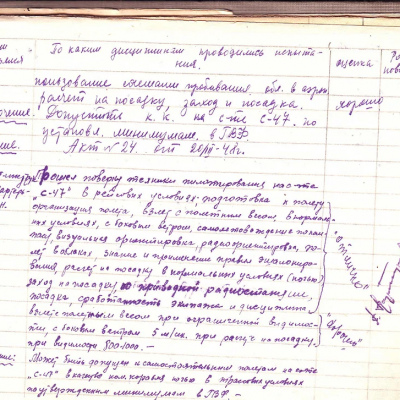 По каким дисциплинам проводились испыта-
ния.
оценка
пользование схемами пребывания, обл. в аэроп.
расчет на посадку, заход и посадка.
хорошо
Допустить к. к. на с-те С-47. по
установл. минимумам, в ГВФ
Акт № 24. от
Прошел поверку техники пилотирования на с-те
"С-47" в рейсовых условиях, подготовка к полету
организация полета, взлет с полетным весом, в нормаль-
ных условиях, с боковым ветром, самолетовождение
визуальная ориентировка, радиоориентировка, по-
лет в облаках, знание и применение правил эшелониро-
вания, расчет на посадку в нормальных условиях (ночью)
заход на посадку по приводной радиостанции,
посадка, сработанность экипажа и дисциплина
взлет с полетным весом при ограниченной видимос-
ти, с боковым ветром 5 м/сек. при расчете на посадку,
при видимости 500-1000. —
"отлично"
"хорошо"
Может быть допущен к самостоятельным полетам на с-те
"С-47" в качестве ком. корабля ночью в трассовых условиях
по утвержденным минимумам в ГВФ —